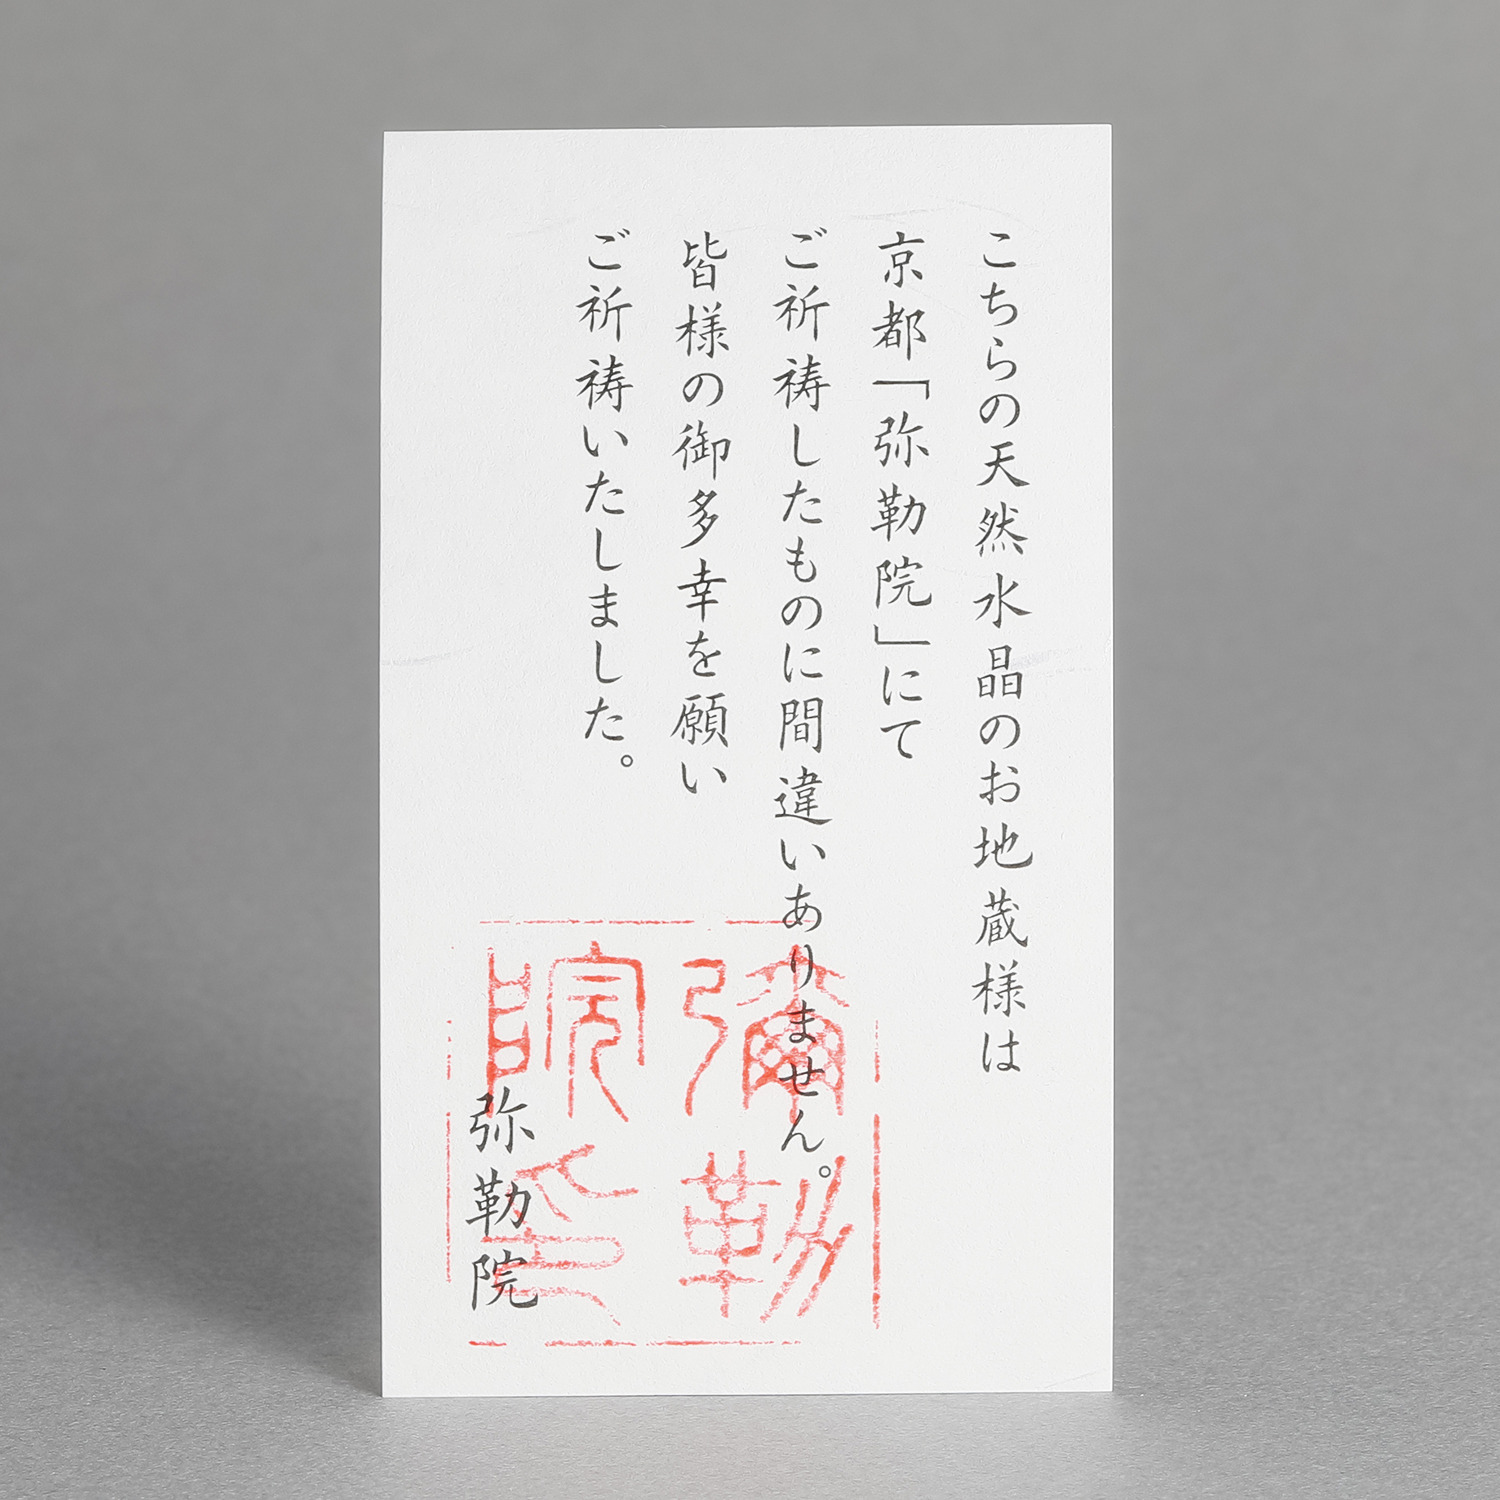 こちらの天然水晶のお地蔵様は
京都「弥勒院」にて
ご祈祷したものに間違いありません。
皆様の御多幸を願い
ご祈祷いたしました。
弥勒院
彌勒
院印